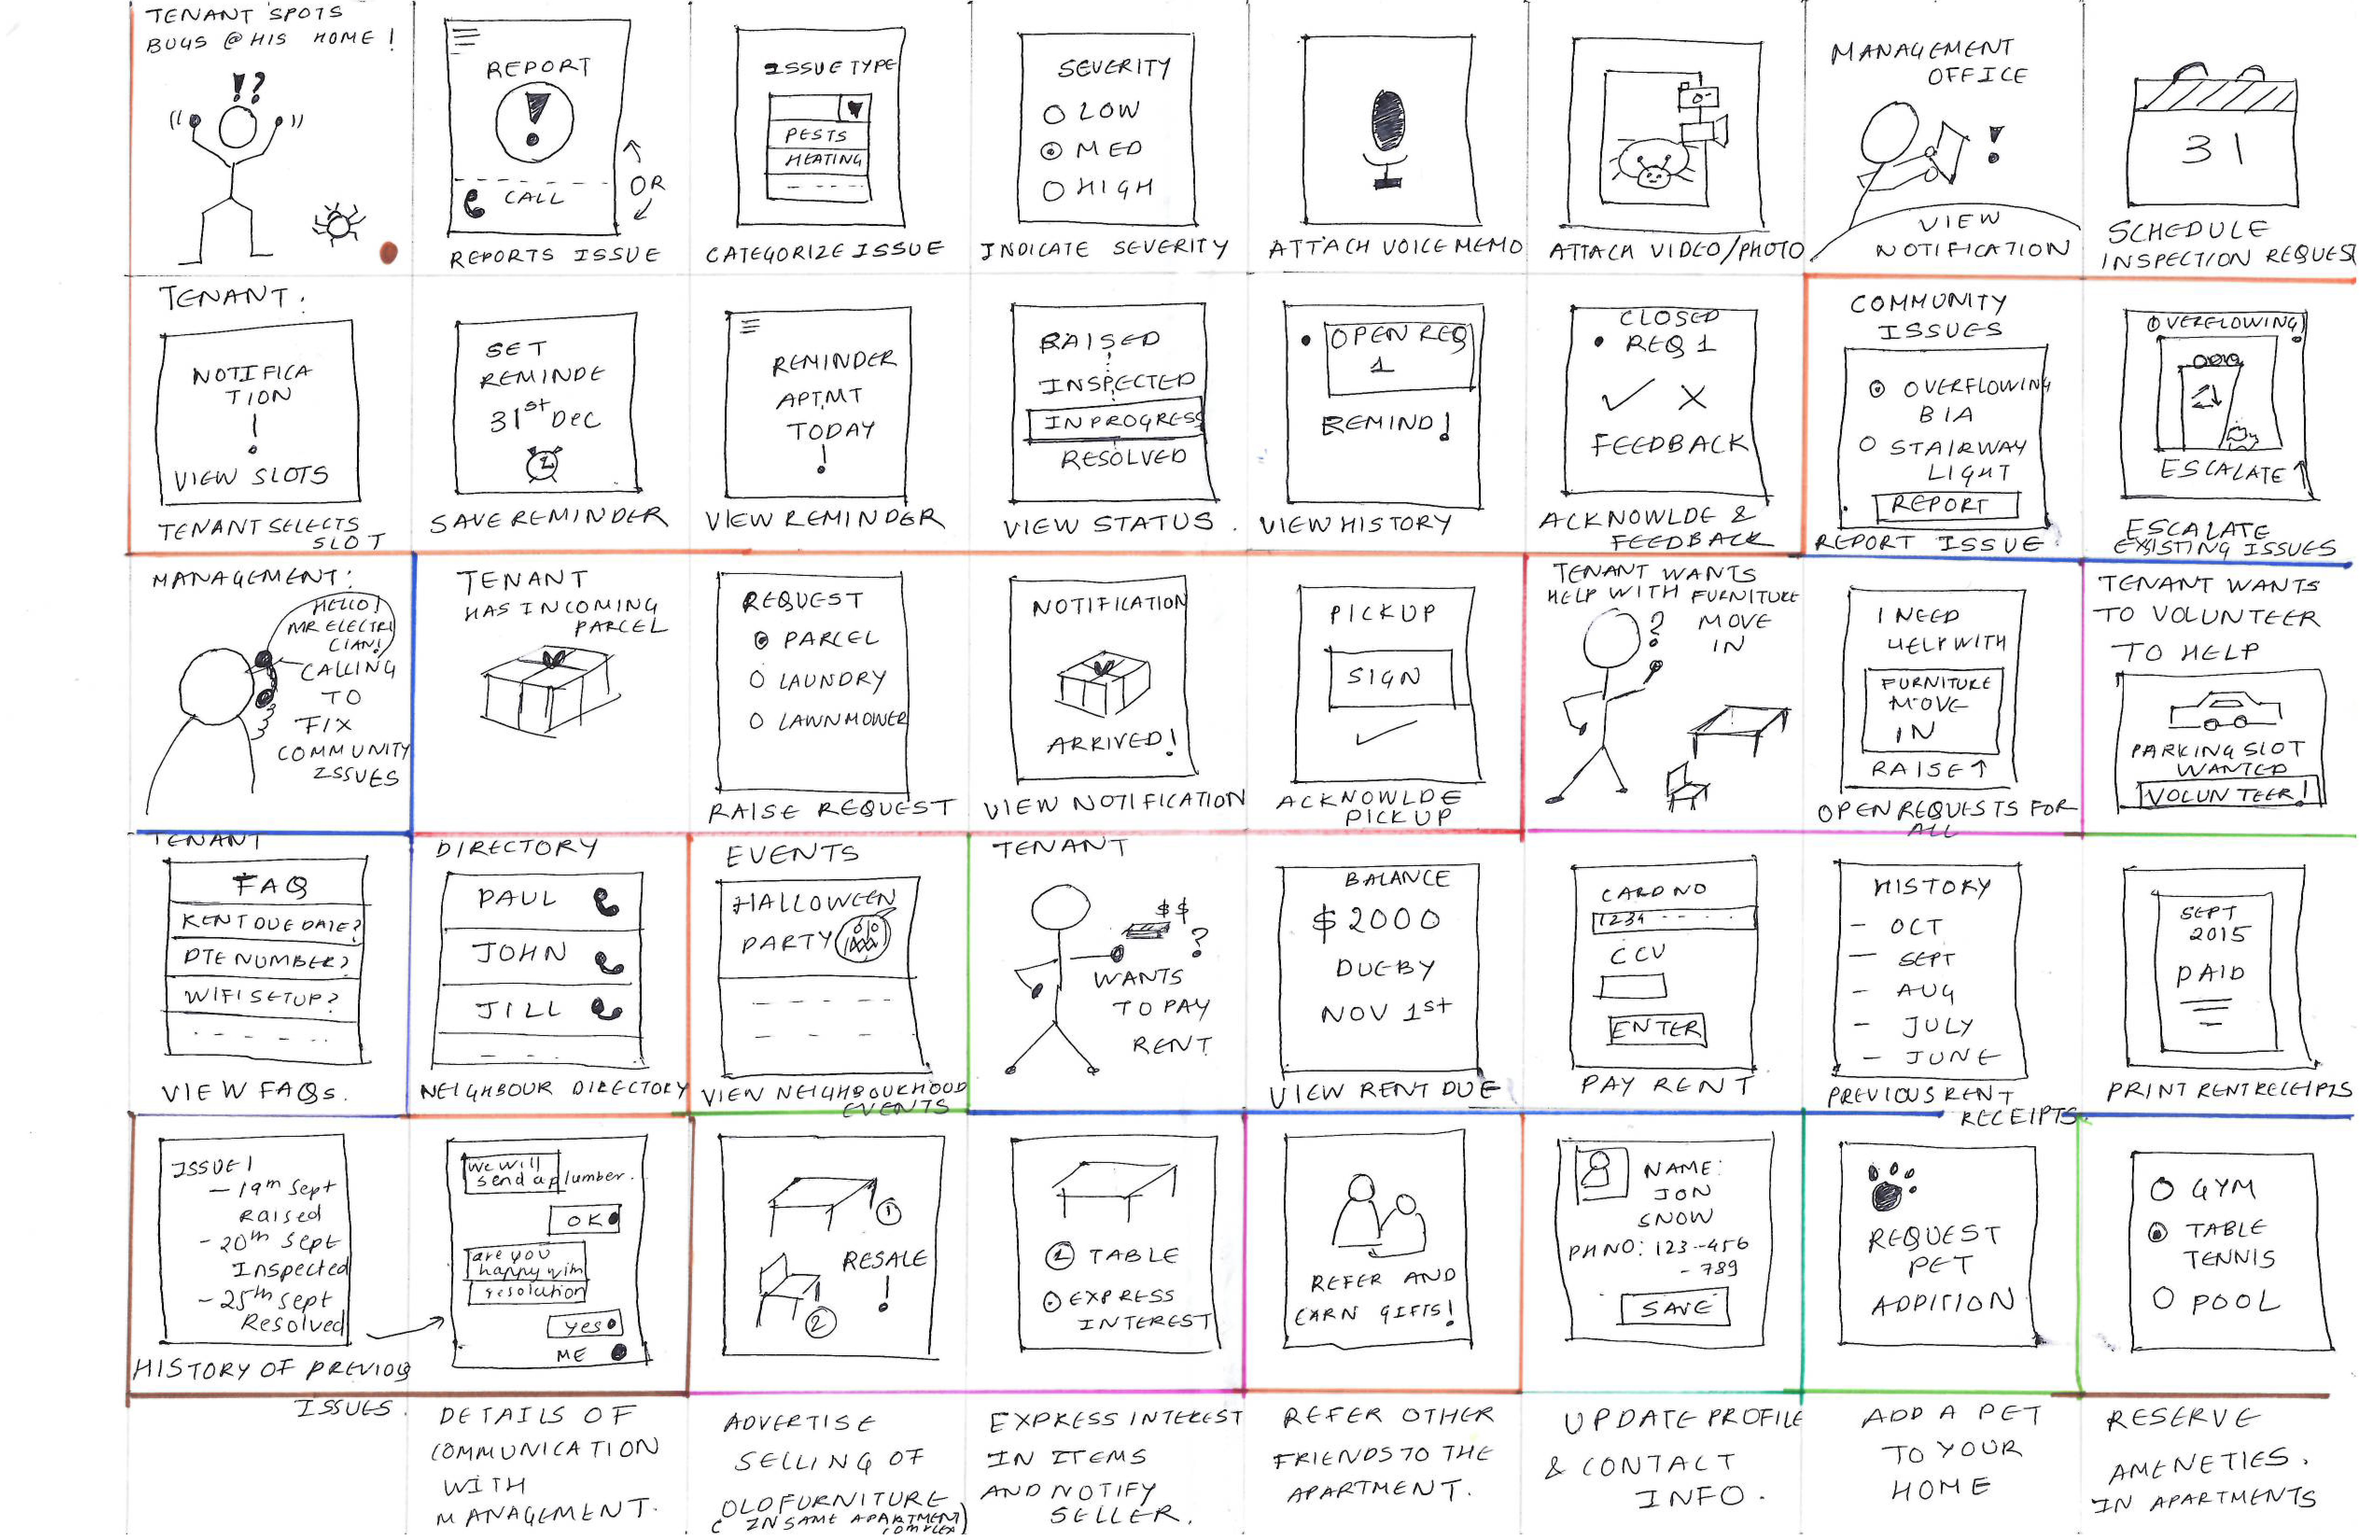 TENANT SPOTS
BUGS @ HIS HOME !
!?
REPORT
!
CALL
OR
REPORTS ISSUE
ISSUE TYPE
PESTS
HEATING
CATEGORIZE ISSUE
SEVERITY
LOW
MED
HIGH
INDICATE SEVERITY
ATTACH VOICE MEMO
ATTACH VIDEO/PHOTO
MANAGEMENT
OFFICE
!
VIEW
NOTIFICATION
31
SCHEDULE
INSPECTION REQUEST
TENANT:
NOTIFICA
TION
!
VIEW SLOTS
TENANT SELECTS
SLOT
SET
REMINDE
31st DEC
SAVE REMINDER
REMINDER
APTMT
TODAY
!
VIEW REMINDER
RAISED
INSPECTED
IN PROGRESS
RESOLVED
VIEW STATUS.
OPEN REQ
1
REMIND!
VIEW HISTORY
CLOSED
REQ 1
✓ X
FEEDBACK
ACKNOWLDE &
FEEDBACK
COMMUNITY
ISSUES
OVERFLOWING
BIA
STAIRWAY
LIGHT
REPORT
REPORT ISSUE
OVERFLOWING!
ESCALATE↑
ESCALATE
EXISTING ISSUES
MANAGEMENT:
HELLO!
MR ELECTRI
CIAN!
CALLING
TO
FIX
COMMUNITY
ISSUES
TENANT
HAS INCOMING
PARCEL
REQUEST
PARCEL
LAUNDRY
LAWNMOWER
RAISE REQUEST
NOTIFICATION
ARRIVED!
VIEW NOTIFICATION
PICKUP
SIGN
✓
ACKNOWLDE
PICK UP
TENANT WANTS
HELP WITH FURNITURE
MOVE
IN
?
I NEED
HELP WITH
FURNITURE
MOVE
IN
RAISE↑
OPEN REQUESTS FOR
ALL
TENANT WANTS
TO VOLUNTEER
TO HELP
PARKING SLOT
WANTED
VOLUNTEER!
TENANT
FAQ
RENT DUE DATE?
PTE NUMBER?
WIFI SETUP?
VIEW FAQs.
DIRECTORY
PAUL
JOHN
JILL
NEIGHBOUR DIRECTORY
EVENTS
HALLOWEEN
PARTY
VIEW NEIGHBOURHOOD
EVENTS
TENANT
$$
?
WANTS
TO PAY
RENT
BALANCE
$2000
DUE BY
NOV 1st
VIEW RENT DUE
CARD NO
1234 - - - -
CCV
ENTER
PAY RENT
HISTORY
- OCT
- SEPT
- AUG
- JULY
- JUNE
PREVIOUS RENT
RECEIPTS.
SEPT
2015
PAID
PRINT RENT RECEIPTS
ISSUE 1
- 19th Sept
Raised
- 20th Sept
Inspected
- 25th Sept
Resolved
HISTORY OF PREVIOUS
ISSUES.
We will
send a plumber.
OK
are you
happy with
resolution
yes
ME
DETAILS OF
COMMUNICATION
WITH
MANAGEMENT.
1
RESALE
!
2
ADVERTISE
SELLING OF
OLD FURNITURE
( IN SAME APARTMENT
COMPLEX)
1 TABLE
EXPRESS
INTEREST
EXPRESS INTEREST
IN ITEMS
AND NOTIFY
SELLER.
REFER AND
EARN GIFTS!
REFER OTHER
FRIENDS TO THE
APARTMENT.
NAME:
JON
SNOW
PH NO: 123-456
- 789
SAVE
UPDATE PROFILE
& CONTACT
INFO.
REQUEST
PET
ADDITION
ADD A PET
TO YOUR
HOME
GYM
TABLE
TENNIS
POOL
RESERVE
AMENETIES.
IN APARTMENTS